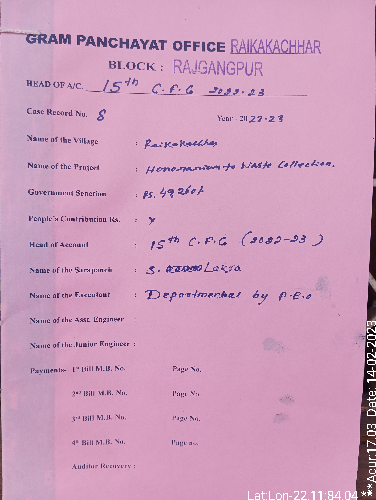 GRAM PANCHAYAT OFFICE RAIKAKACHHAR
BLOCK : RAJGANGPUR
HEAD OF A/C. 15th C.F.G 2022-23
Case Record No. 8 Year- 2022-23
Name of the Village : Raikakachhar
Name of the Project : Honorarium to Waste Collection.
Government Senction : Rs. 49,260/-
People's Contribution Rs. : X
Head of Account : 15th C.F.G (2022-23)
Name of the Sarapanch : S. Lakra
Name of the Executant : Departmental by P.E.O
Name of the Asst. Engineer :
Name of the Junior Engineer :
Payments- 1st Bill M.B. No. Page No.
2nd Bill M.B. No. Page No.
3rd Bill M.B. No. Page No.
4th Bill M.B. No. Page no.
Auditor Recovery :
Lat Lon-22.11:84.04
***Acur:17.03 Date: 14-02-2023